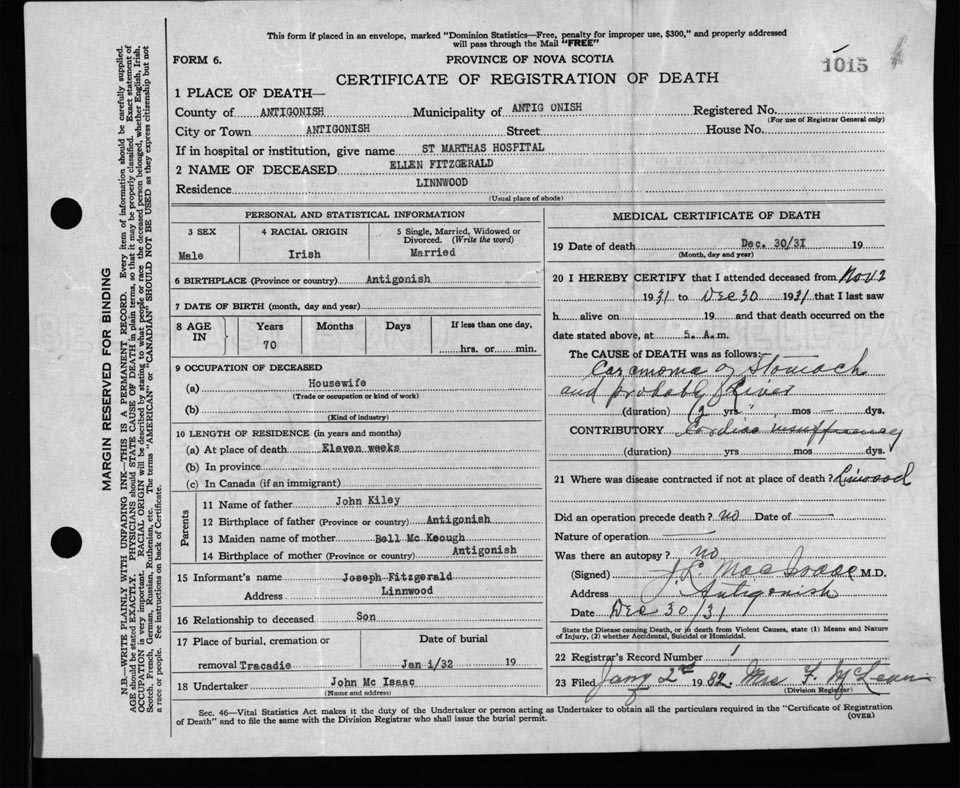 This form if placed in an envelope, marked "Dominion Statistics—Free, penalty for improper use, $300," and properly addressed
will pass through the Mail "FREE"
FORM 6.
PROVINCE OF NOVA SCOTIA
1015
CERTIFICATE OF REGISTRATION OF DEATH
1 PLACE OF DEATH—
County of ANTIGONISH Municipality of ANTIG ONISH Registered No.
(For use of Registrar General only)
City or Town ANTIGONISH Street House No.
If in hospital or institution, give name ST MARTHAS HOSPITAL
2 NAME OF DECEASED ELLEN FITZGERALD
Residence LINNWOOD
(Usual place of abode)
PERSONAL AND STATISTICAL INFORMATION
3 SEX 4 RACIAL ORIGIN 5 Single, Married, Widowed or
Divorced. (Write the word)
Male Irish Married
6 BIRTHPLACE (Province or country) Antigonish
7 DATE OF BIRTH (month, day and year)
8 AGE IN Years Months Days If less than one day,
70 hrs. or min.
9 OCCUPATION OF DECEASED
(a) Housewife
(Trade or occupation or kind of work)
(b)
(Kind of industry)
10 LENGTH OF RESIDENCE (in years and months)
(a) At place of death Eleven weeks
(b) In province
(c) In Canada (if an immigrant)
Parents
11 Name of father John Kiley
12 Birthplace of father (Province or country) Antigonish
13 Maiden name of mother Bell Mc Keough
14 Birthplace of mother (Province or country) Antigonish
15 Informant's name Joseph Fitzgerald
Address Linnwood
16 Relationship to deceased Son
17 Place of burial, cremation or Date of burial
removal Tracadie Jan 1/32 19
18 Undertaker John Mc Isaac
(Name and address)
MEDICAL CERTIFICATE OF DEATH
19 Date of death Dec. 30/31 19
(Month, day and year)
20 I HEREBY CERTIFY that I attended deceased from Nov 2
1931 to Dec 30 1931 that I last saw
h alive on 19 and that death occurred on the
date stated above, at 5. A.m.
The CAUSE of DEATH was as follows:—
Carcinoma of Stomach
and probably Liver
(duration) yrs. mos — dys.
CONTRIBUTORY Cardiac insufficiency
(duration) yrs mos dys.
21 Where was disease contracted if not at place of death? Linwood
Did an operation precede death? no Date of —
Nature of operation —
Was there an autopsy? no
(Signed) J. L. MacIsaac M.D.
Address Antigonish
Date Dec 30/31
State the Disease causing Death, or in death from Violent Causes, state (1) Means and Nature
of Injury, (2) whether Accidental, Suicidal or Homicidal.
22 Registrar's Record Number 1
23 Filed Jany 2nd 1932. Mrs F. McLean
(Division Registrar)
Sec. 46—Vital Statistics Act makes it the duty of the Undertaker or person acting as Undertaker to obtain all the particulars required in the "Certificate of Registration
of Death" and to file the same with the Division Registrar who shall issue the burial permit.
(OVER)
MARGIN RESERVED FOR BINDING
N.B.—WRITE PLAINLY WITH UNFADING INK—THIS IS A PERMANENT RECORD. Every item of information should be carefully supplied.
AGE should be stated EXACTLY. PHYSICIANS should STATE CAUSE OF DEATH in plain terms, so that it may be properly classified. Exact statement of
OCCUPATION is very important. RACIAL ORIGIN will be described by stating to what people or race the deceased person belonged, whether English, Irish,
Scotch, French, German, Russian, Ruthenian, etc. The terms "AMERICAN" or "CANADIAN" SHOULD NOT BE USED as they express citizenship but not
a race or people. See instructions on back of Certificate.